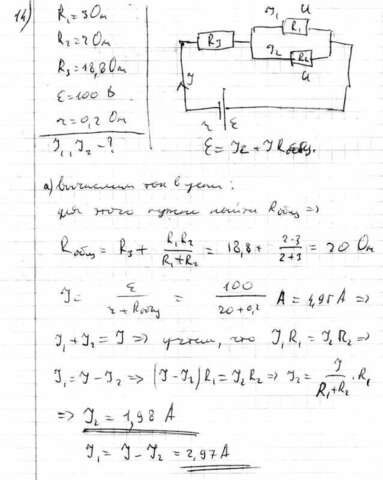 14)
R₁=3 Ом
R₂=2 Ом
R₃=18,8 Ом
ε=100 В
r=0,2 Ом
I₁, I₂ - ?
I₁ U
R₁
R₃
I₂ R₂
U
I
r ε
ε = Ir + IRобщ.
а) Вычислим ток в цепи:
для этого нужно найти Rобщ =>
Rобщ = R₃ + R₁R₂/(R₁+R₂) = 18,8 + 2·3/(2+3) = 20 Ом
I = ε/(r+Rобщ) = 100/(20+0,2) А = 4,95 А =>
I₁ + I₂ = I => учтём, что I₁R₁ = I₂R₂ =>
I₁ = I - I₂ => (I - I₂) R₁ = I₂R₂ => I₂ = I/(R₁+R₂) · R₁
=> I₂ = 1,98 А
I₁ = I - I₂ = 2,97 А